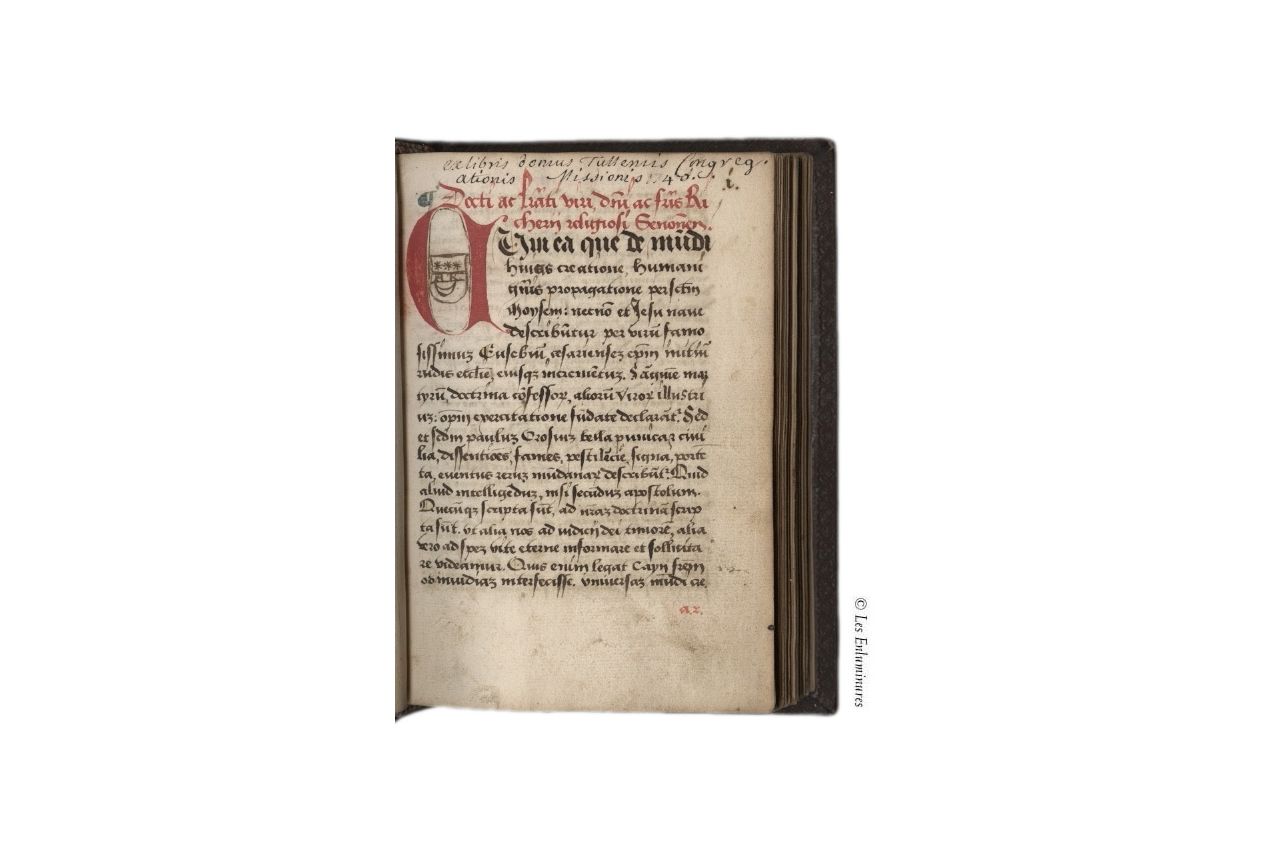 exlibris domus Tullensis Congreg-
ationis Missionis 1740.
i.
Docti ac Lr̃ati viri, dn̄i ac fr̃is Ri
cherij religiosi Senonen̄.
Cum ea que de mūdi
huius creatione, humani
gn̄is propagatione per sctm̄
Moysem: necnō et Jesu naue
describūtur per virū famo
sissimuz Eusebiū, cesariensez ep̄m
rudis ecclīe, eiusqz incrementuz. mar
tyrū, doctrina cōfessoꝝ, alioruꝫ viroꝝ illustri
uz: exercitatione sudate declarāt. Sed
et secdm paulus Orosius bella punicaꝝ ciui
lia, dissentiōes, fames, pestilēcie, signa, portē
ta, euentus reruz mūdanaꝝ describūt. Quid
aliud intelligēduz, nisi secūduz apostolum.
Quecūqz scripta sūt, ad nr̄az doctrinā scrip
ta sūt. vt alia nos ad iudicij dei timorē, alia
vero ad spez vite eterne informare et sollicita
re videantur. Quis enim legat Cayn fr̄em
ob inuidiaz interfecisse. vniuersaz mūdi cre
a.2.
© Les Enluminures